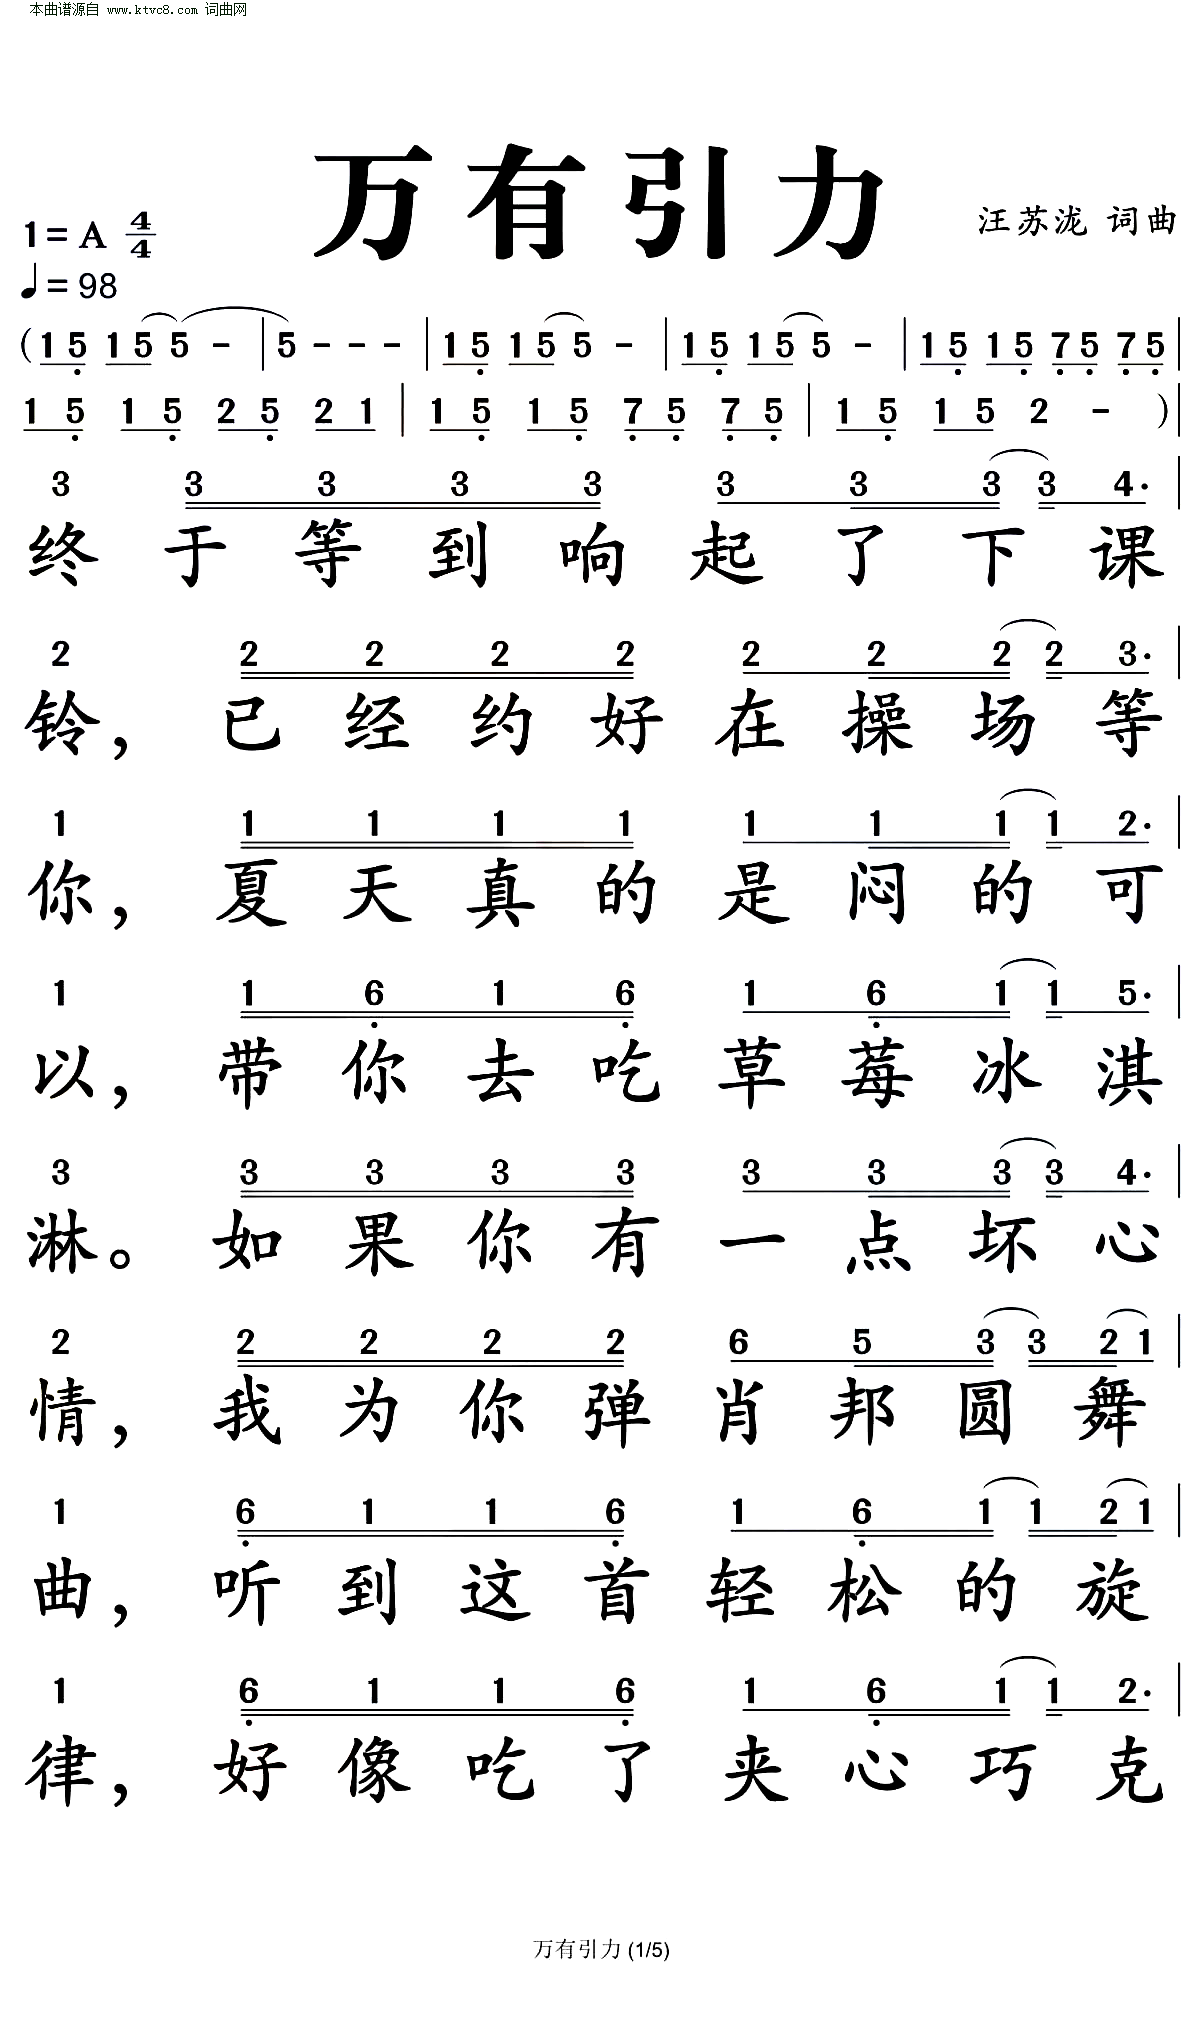 本曲谱源自 www.ktvc8.com 词曲网
万有引力
1= A 4/4
汪苏泷 词曲
♩= 98
( 1 5 1 5 5 - | 5 - - - | 1 5 1 5 5 - | 1 5 1 5 5 - | 1 5 1 5 7 5 7 5 |
1 5 1 5 2 5 2 1 | 1 5 1 5 7 5 7 5 | 1 5 1 5 2 - ) |
3 3 3 3 3 3 3 3 3 4· |
终于等到响起了下课
2 2 2 2 2 2 2 2 2 3· |
铃，已经约好在操场等
1 1 1 1 1 1 1 1 1 2· |
你，夏天真的是闷的可
1 1 6 1 6 1 6 1 1 5· |
以，带你去吃草莓冰淇
3 3 3 3 3 3 3 3 3 4· |
淋。如果你有一点坏心
2 2 2 2 2 6 5 3 3 2 1 |
情，我为你弹肖邦圆舞
1 6 1 1 6 1 6 1 1 2 1 |
曲，听到这首轻松的旋
1 6 1 1 6 1 6 1 1 2· |
律，好像吃了夹心巧克
万有引力 (1/5)